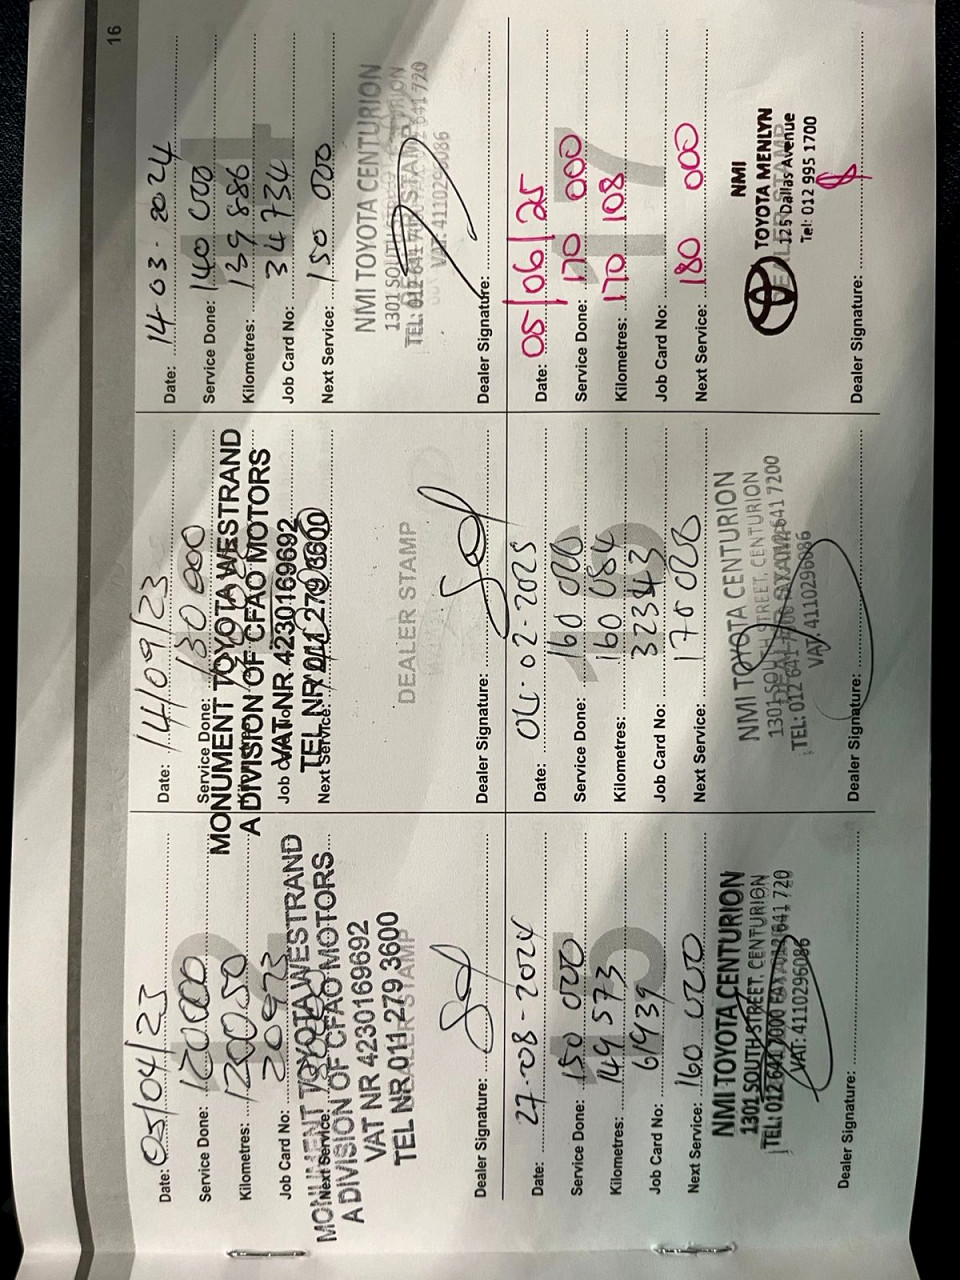 16
Date: 05/04/23
Service Done: 120000
Kilometres: 120050
Job Card No: 20973
Next Service:
MONUMENT TOYOTA WESTRAND
A DIVISION OF CFAO MOTORS
VAT NR 4230169692
TEL NR 011 279 3600
DEALER STAMP
Dealer Signature:
Date: 14/09/23
Service Done: 130 000
MONUMENT TOYOTA WESTRAND
A DIVISION OF CFAO MOTORS
Job
VAT NR 4230169692
TEL NR 011 279 3600
Next Service:
DEALER STAMP
Dealer Signature:
Date: 14-03-2024
Service Done: 140 000
Kilometres: 139 886
Job Card No: 34734
Next Service: 150 000
NMI TOYOTA CENTURION
1301 SOUTH STREET, CENTURION
VAT: 4110296086
Dealer Signature:
15
Date: 27-08-2024
Service Done: 150 000
Kilometres: 149 573
Job Card No: 61939
Next Service: 160 000
NMI TOYOTA CENTURION
1301 SOUTH STREET, CENTURION
TEL: 012 641
VAT: 4110296086
Dealer Signature:
16
Date: 02-2025
Service Done: 160 000
Kilometres: 160 084
Job Card No: 32343
Next Service: 170 000
NMI TOYOTA CENTURION
1301 SOUTH STREET, CENTURION
TEL: 012 641
VAT: 4110296086
Dealer Signature:
17
Date: 05/06/25
Service Done: 170 000
Kilometres: 170 108
Job Card No:
Next Service: 180 000
NMI
TOYOTA MENLYN
125 Dallas Avenue
DEALER STAMP
Tel: 012 995 1700
Dealer Signature: